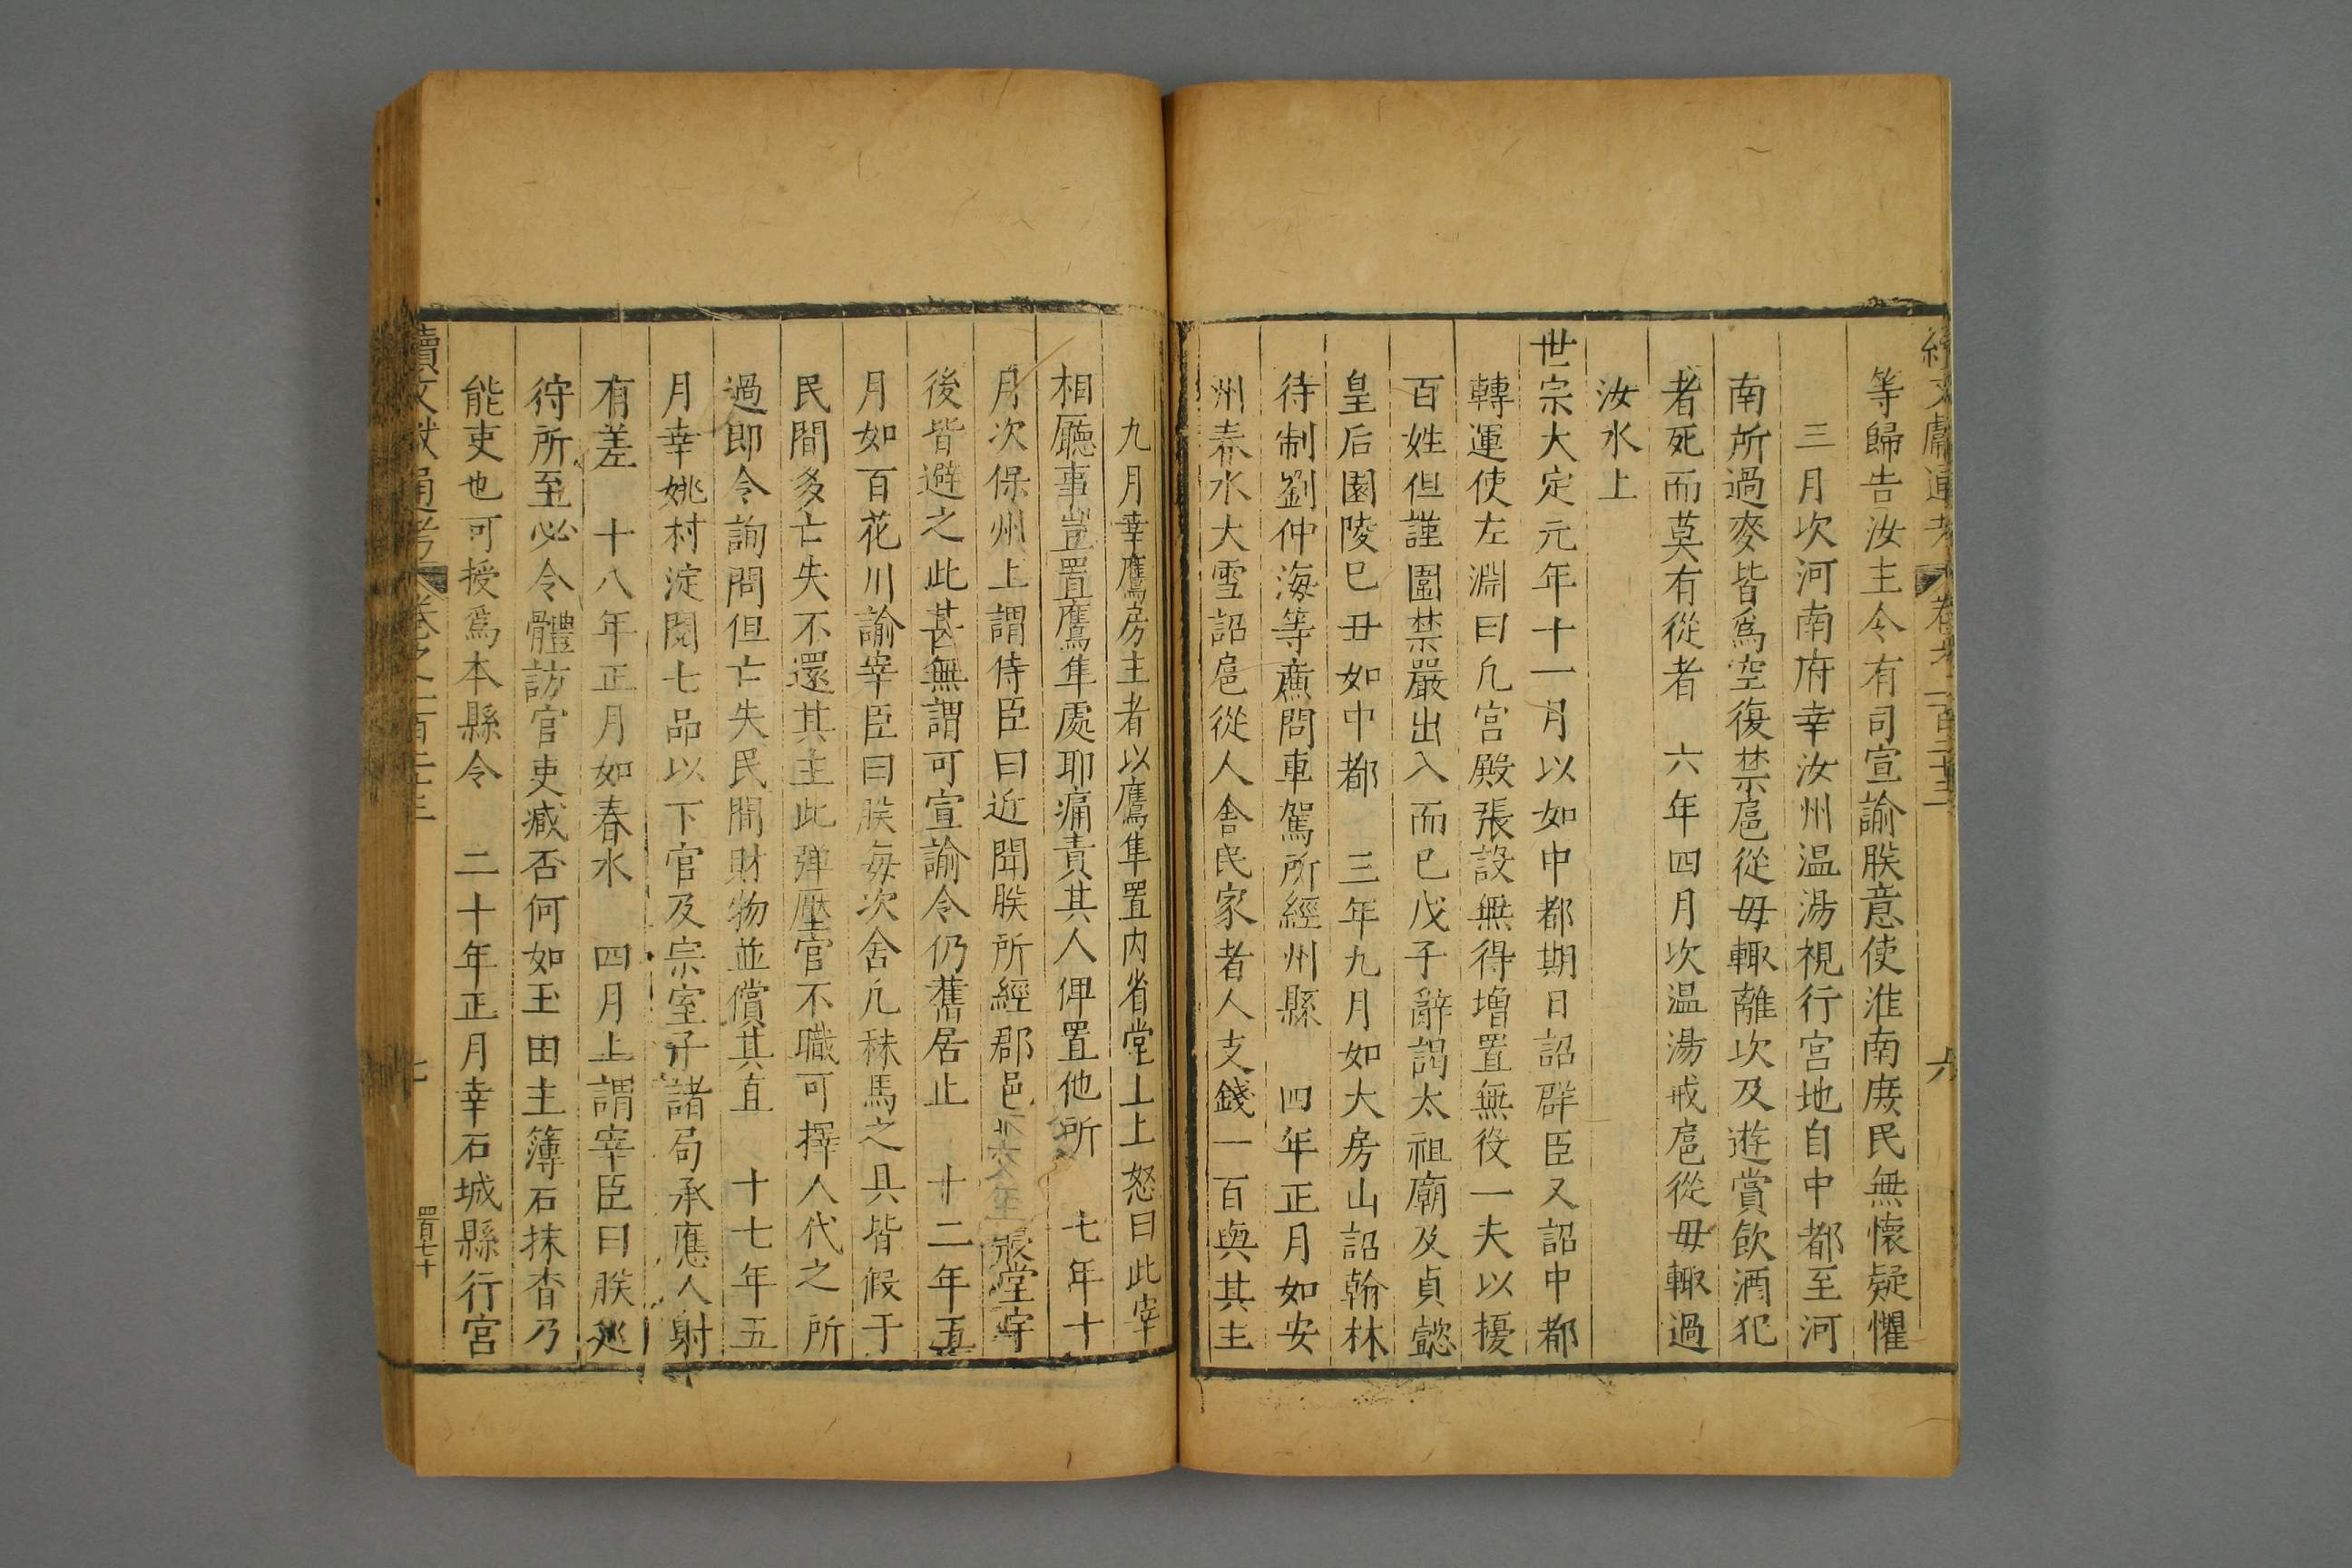 等歸告汝主令有司宣諭朕意使淮南庻民無懷疑懼
三月次河南府幸汝州温湯視行宫地自中都至河
南所過麥皆爲空復禁扈從毋輙離次及遊賞飲酒犯
者死而莫有從者　六年四月次温湯戒扈從毋輙過
汝水上
世宗大定元年十一月以如中都期日詔群臣又詔中都
轉運使左淵曰凡宫殿張設無得增置無役一夫以擾
百姓但謹圍禁嚴出入而已戊子辭謁太祖廟及貞懿
皇后園陵巳丑如中都　三年九月如大房山詔翰林
待制劉仲海等廉問車駕所經州縣　四年正月如安
州春水大雪詔扈從人舍民家者人支錢一百與其主
九月幸鷹房主者以鷹隼置内省堂上上怒曰此宰
相廳事豈置鷹隼處耶痛責其人俾置他所　七年十
月次保州上謂侍臣曰近聞朕所經郡邑
後皆避之此甚無謂可宣諭令仍舊居止　十二年五
月如百花川諭宰臣曰朕每次舍凡秣馬之具皆假于
民間多亡失不還其主此彈壓官不職可擇人代之所
過即令詢問但亡失民間財物並償其直　十七年五
月幸姚村淀閱七品以下官及宗室子諸局承應人射
有差　十八年正月如春水　四月上謂宰臣曰朕巡
狩所至必令體訪官吏臧否何如玉田主簿石抹杳乃
能吏也可授爲本縣令　二十年正月幸石城縣行宫
續文獻通考